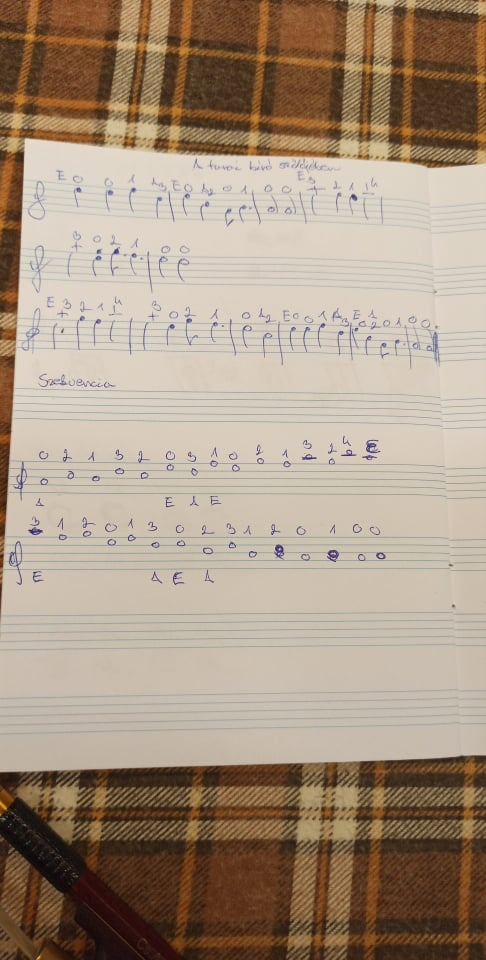 A turai bíró
E 0 0 1 A3 E0 A2 0 1 0 0 E3 2 1 4
3 0 2 1 0 0
E 3 2 1 4 3 0 2 1 0 A2 E0 0 1 A3 E1 0 2 0 1 0 0
Szekvencia
0 2 1 3 2 0 3 1 0 2 1 3 2 4
A E A E
3 1 2 0 1 3 0 2 3 1 2 0 1 0 0
E A E A